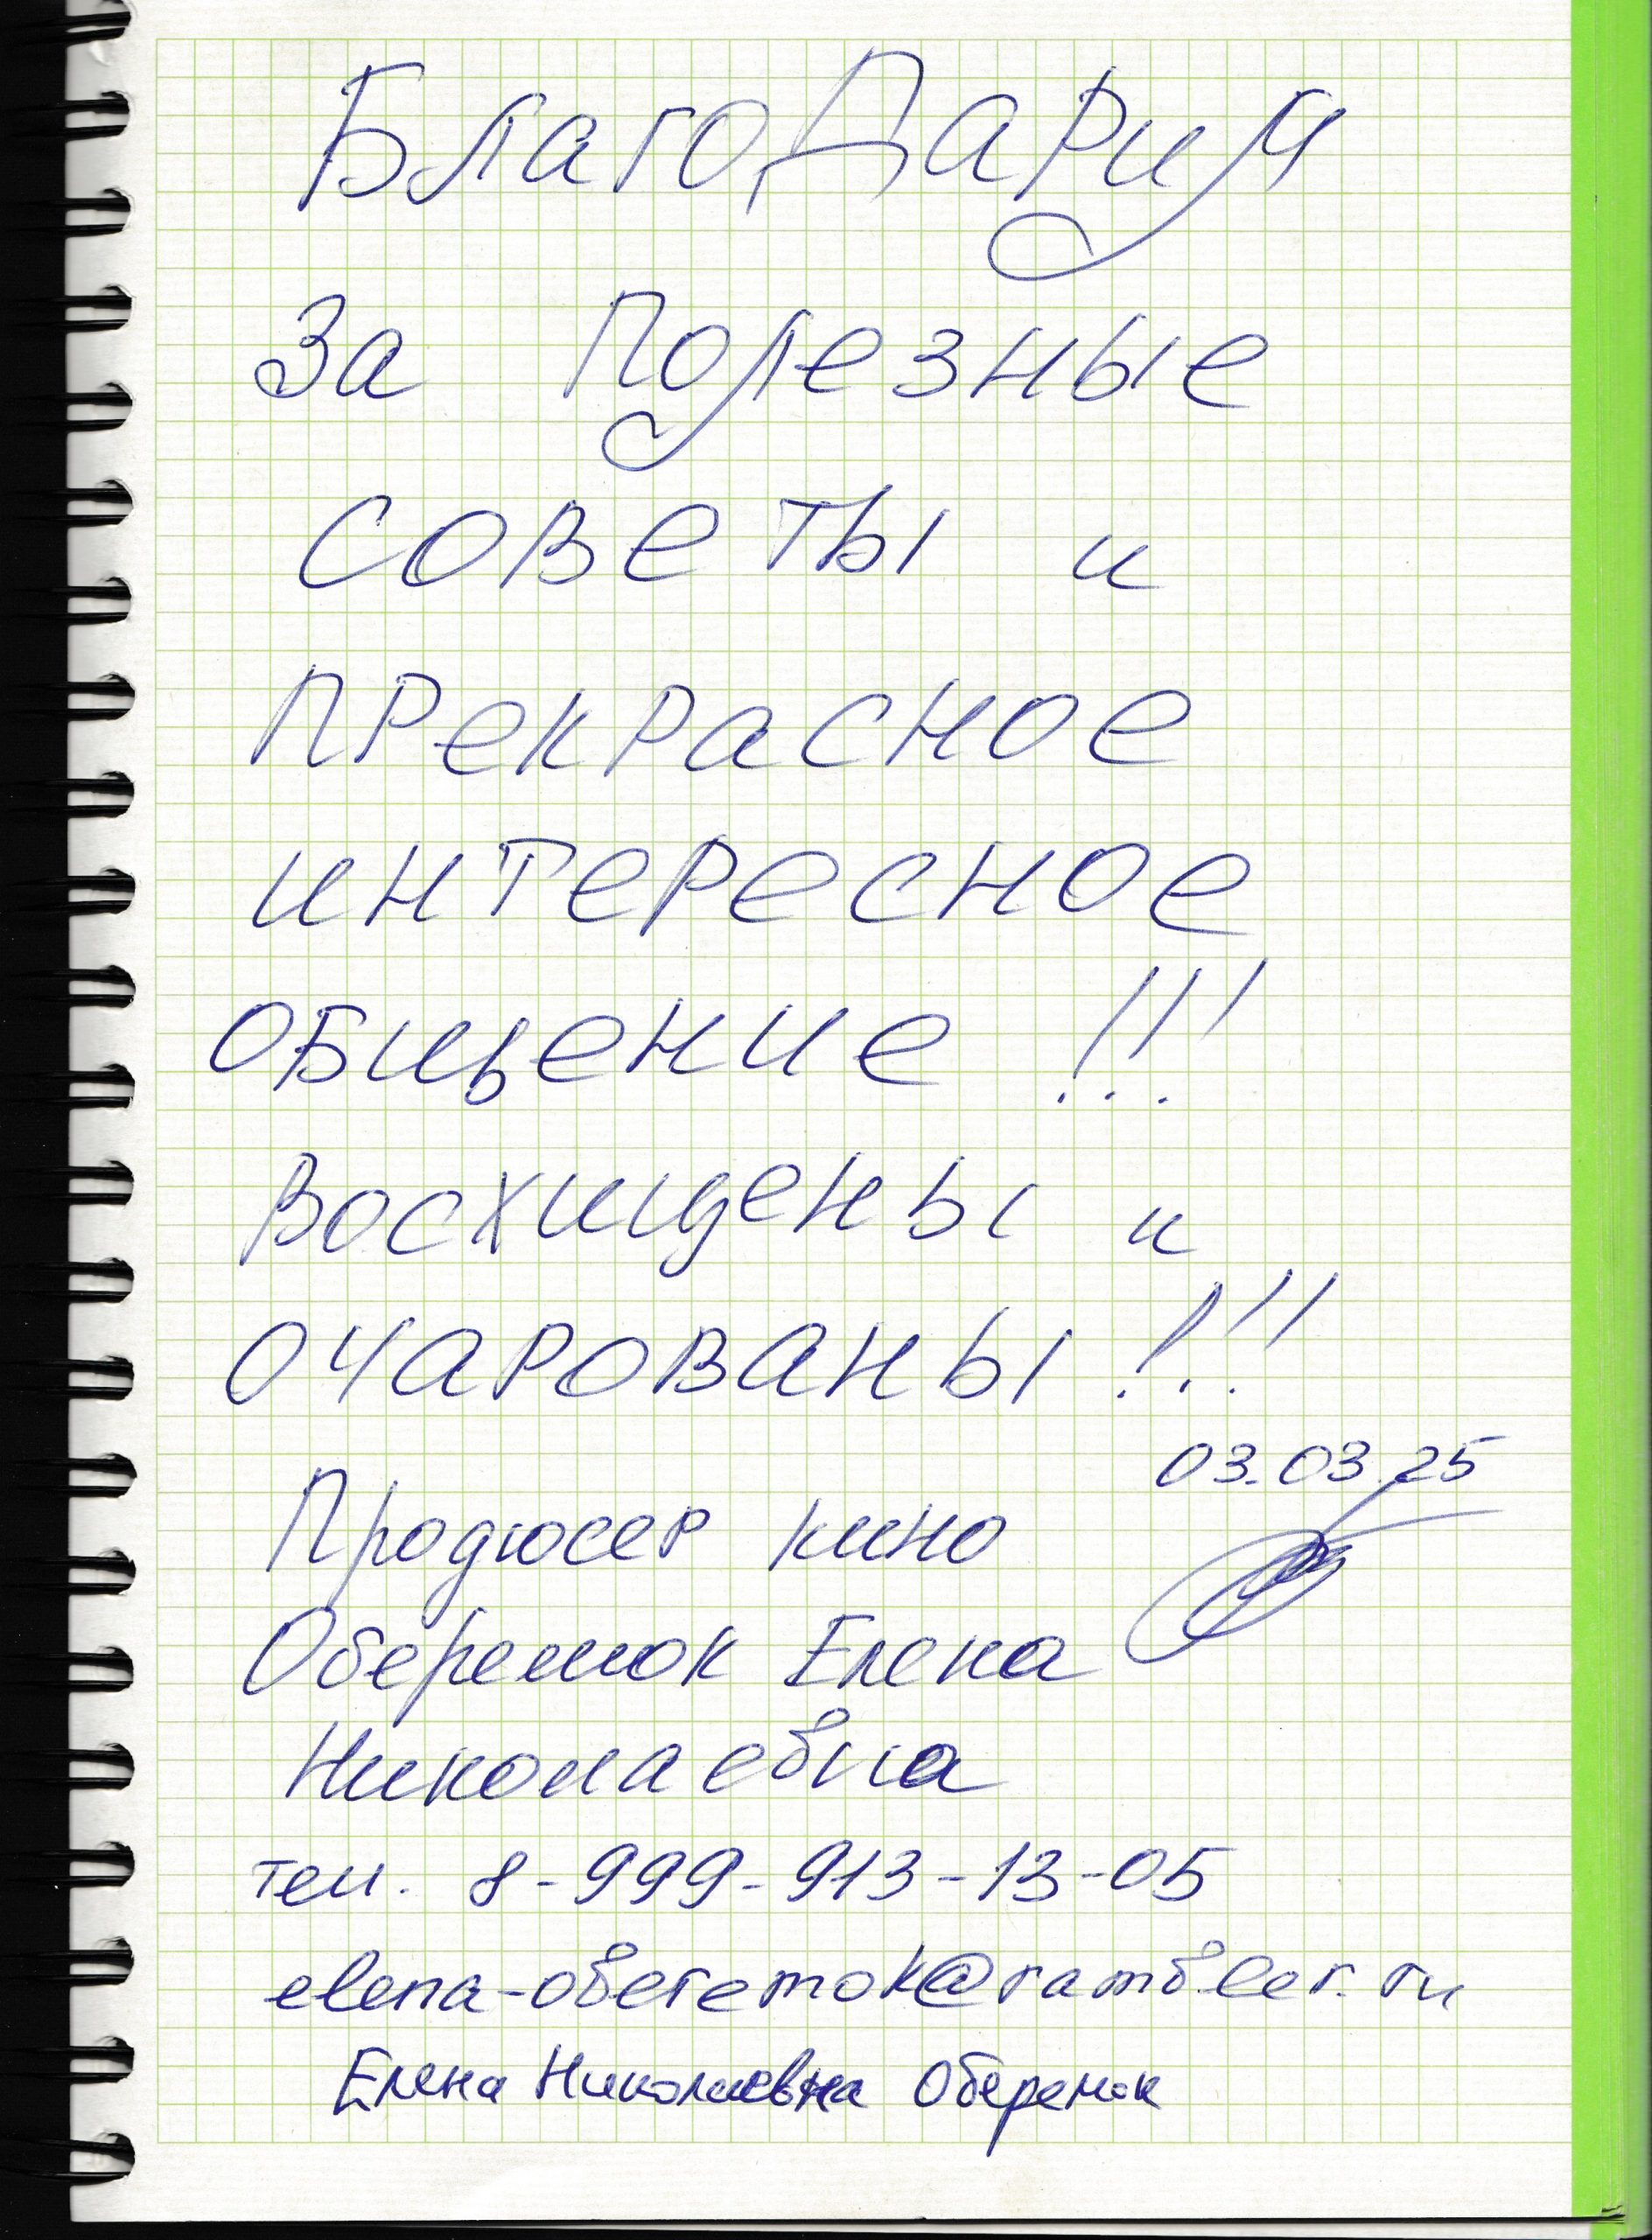 БлагоДарим
За Полезные
советы и
прекрасное
интересное
общение!!!
Восхищены и
очарованы!!!
03.03.25
Продюсер кино
Оберемок Елена
Николаевна
тел. 8-999-913-13-05
elena-oberemok@rambler.ru
Елена Николаевна Оберемок